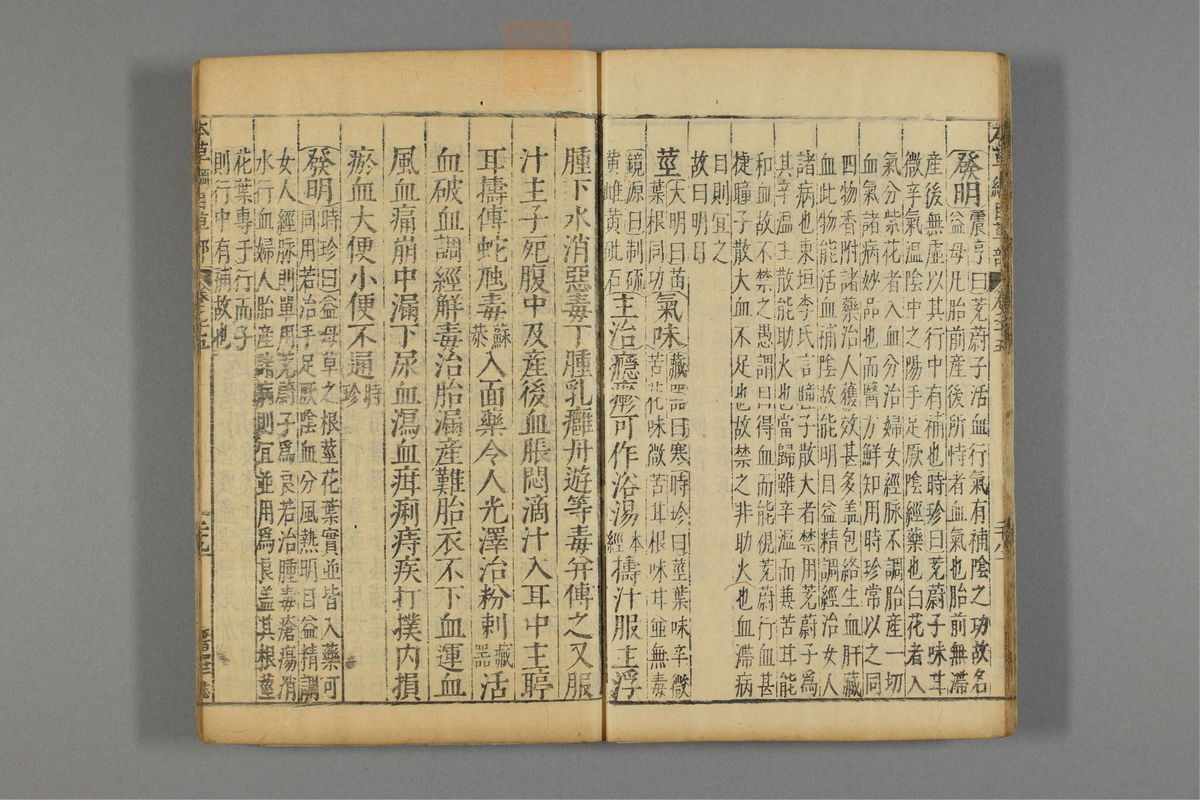 發明震亨曰茺蔚子活血行氣有補陰之功故名
益母凡胎前産後所恃者血氣也胎前無滯
産後無虚以其行中有補也時珍曰茺蔚子味甘
微辛氣温陰中之陽手足厥陰經藥也白花者入
氣分紫花者入血分治婦女經脉不調胎産一切
血氣諸病妙品也而醫方鮮知用時珍常以之同
四物香附諸藥治人獲效甚多盖包絡生血肝藏
血此物能活血補陰故能明目益精調經治女人
諸病也東垣李氏言瞳子散大者禁用茺蔚子爲
其辛温主散能助火也當歸雖辛温而兼苦甘能
和血故不禁之愚謂目得血而能視茺蔚行血甚
捷瞳子散大血不足也故禁之非助火也血滯病
目則宜之
故曰明目
莖大明曰苗葉根同功氣味藏器曰寒時珍曰莖葉味辛微苦花味微苦甘根味甘並無毒
鏡源曰制硫黄雌黄砒石主治癮𤺋可作浴湯本經擣汁服主浮
腫下水消惡毒丁腫乳癰丹遊等毒并傅之又服
汁主子死腹中及産後血脹悶滴汁入耳中主聤
耳擣傅蛇虺毒蘇恭入面藥令人光澤治粉刺藏器活
血破血調經解毒治胎漏産難胎衣不下血運血
風血痛崩中漏下尿血瀉血疳痢痔疾打撲内損
瘀血大便小便不通時珍
發明時珍曰益母草之根莖花葉實並皆入藥可
同用若治手足厥陰血分風熱明目益精調
女人經脉則單用茺蔚子爲良若治腫毒瘡瘍消
水行血婦人胎産諸病則宜並用爲良盖其根莖
花葉專于行而子
則行中有補故也